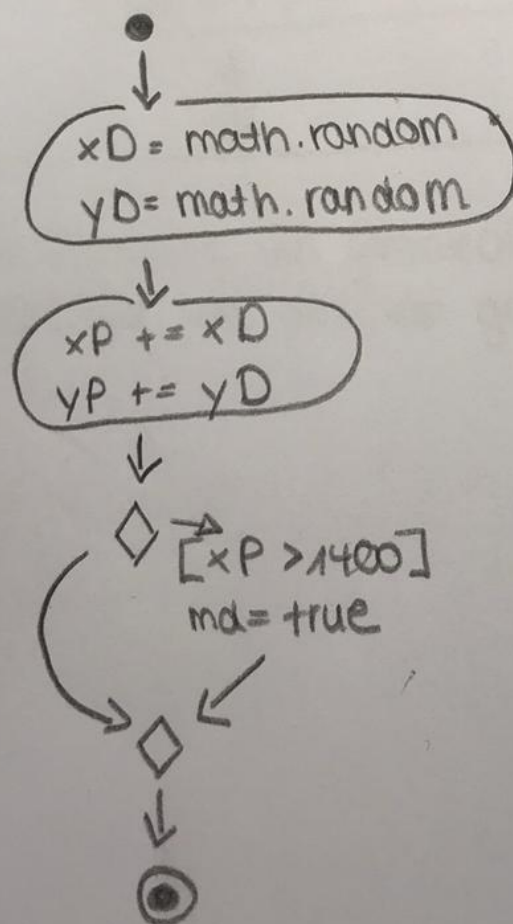 xD = math.random
yD = math.random
xP += xD
yP += yD
[xP > 1400]
md = true